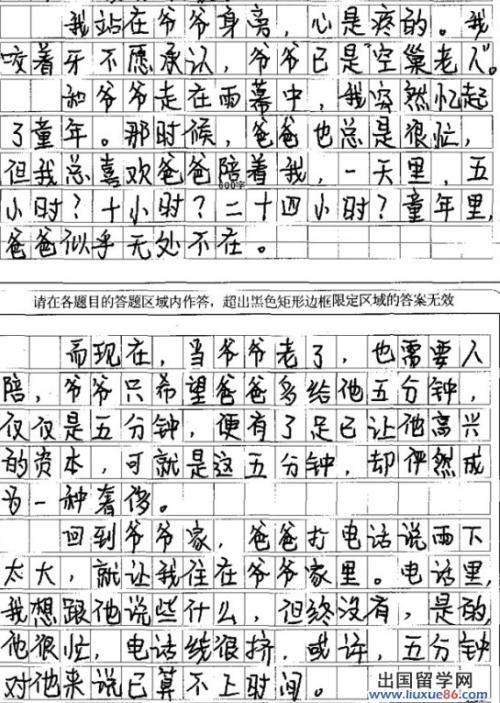 我站在爷爷身旁，心是疼的。我
咬着牙不愿承认，爷爷已是"空巢老人"。
和爷爷走在雨幕中，我突然忆起
了童年。那时候，爸爸也总是很忙，
但我总喜欢爸爸陪着我，一天里，五
600字
小时？十小时？二十四小时？童年里，
爸爸似乎无处不在。
请在各题目的答题区域内作答，超出黑色矩形边框限定区域的答案无效
而现在，当爷爷老了，也需要人
陪，爷爷只希望爸爸多给他五分钟，
仅仅是五分钟，便有了足已让他高兴
的资本，可就是这五分钟，却俨然成
为一种奢侈。
回到爷爷家，爸爸打电话说雨下
太大，就让我住在爷爷家里。电话里，
我想跟他说些什么，但终没有，是的，
他很忙，电话线很挤，或许，五分钟
对他来说已算不上时间。
出国留学网
www.liuxue86.com